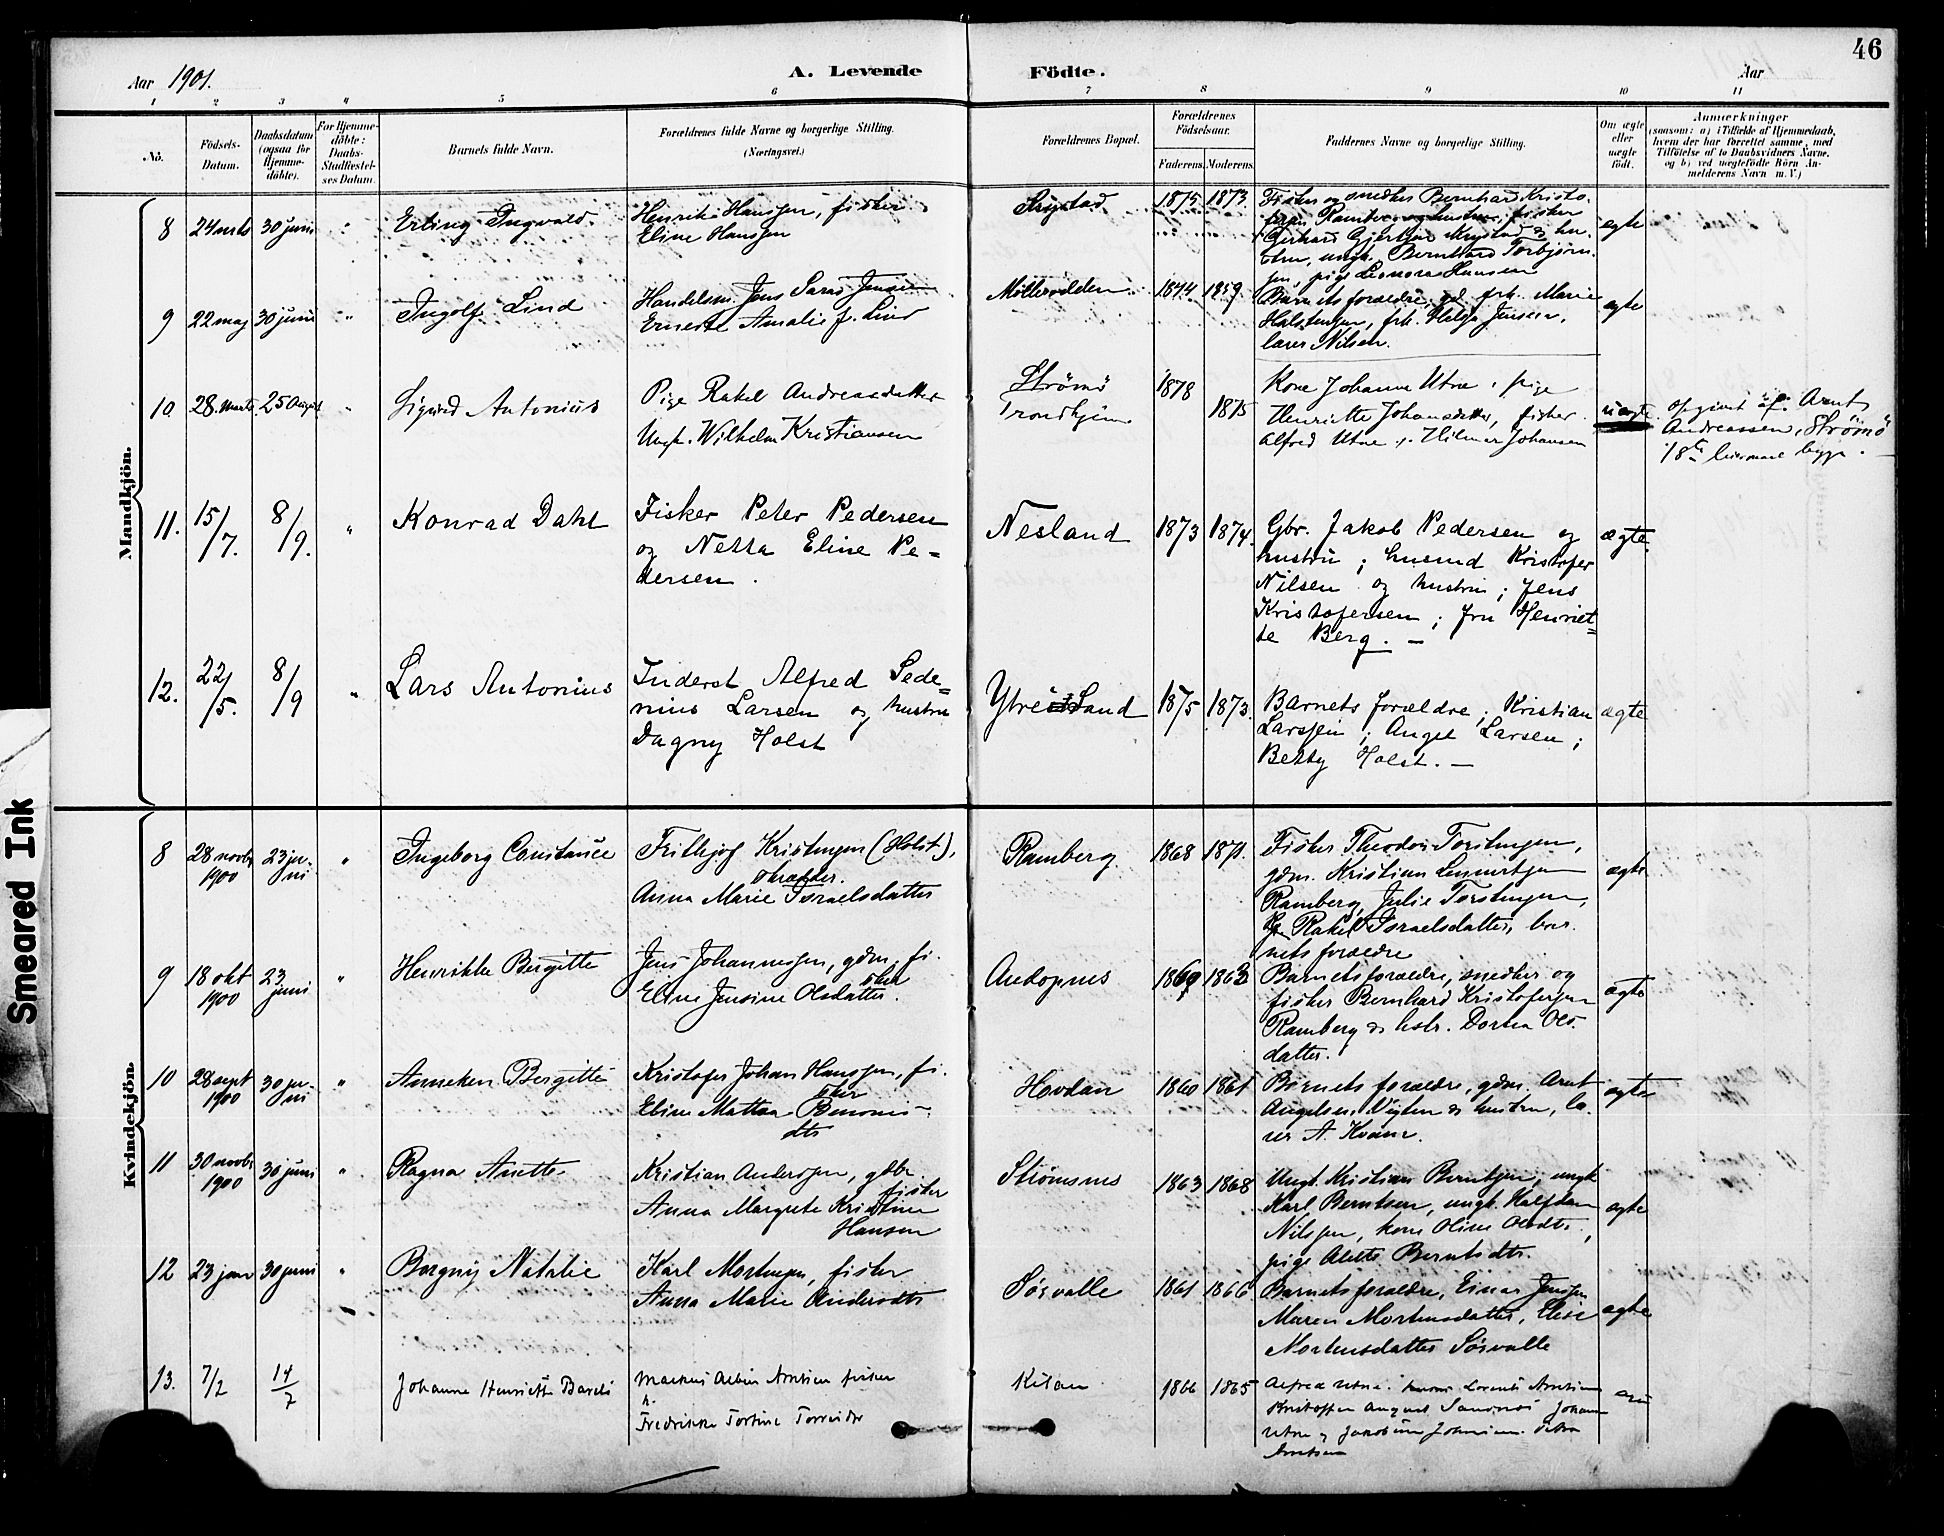 46
Aar 1901.
A. Levende
Födte.
Aar
1 2 3 4 5 6 7 8 9 10 11
No.
Födsels-
Datum.
Daabsdatum
(ogsaa for
Hjemme-
döbte).
For Hjemme-
döbte:
Daabs-
Stadfæstel-
ses Datum.
Barnets fulde Navn.
Forældrenes fulde Navne og borgerlige Stilling.
(Næringsvei.)
Forældrenes Bopæl.
Forældrenes
Födselsaar.
Faderens. Moderens.
Faddernes Navne og borgerlige Stilling.
Om ægte
eller
uægte
födt.
Anmærkninger
(saasom: a) i Tilfælde af Hjemmedaab,
hvem der har forrettet samme, med
Tilföielse af to Daabsvidners Navne,
og b) ved uægtefödte Börn An-
melderens Navn m. V.)
Mandkjön.
8 24 marts 30 juni " Erling Ingvald
Henrik Hanssen, fisker
Eline Hanssen
1875 1873
Fisker og snedker Bernhard Kristo-
ægte
9 22 maj 30 juni " Ingolf Lind
Handelsm. Jens Jensen
Amalie f. Lind
1844 1859
Barnets forældre, frk. Marie
frk. Helga Jensen,
lærer Nilsen.
ægte
10 28 marts 25 August " Sigurd Antonius
Pige Rakel Andreasdatter
Ungk. Wilhelm Kristiansen
Strömö
Trondhjem
1878
1875
Kone Johanna Utne, pige
Henriette Johansdatter, fisker
Alfred Utne, Hilmar Johansen
uægte
opgivet af Arnt
Andreassen, Strömö
11. 15/7. 8/9. " Konrad Dahl
Fisker Peter Pedersen
og Netta Eline Pe-
dersen.
Nesland
1873 1874.
Gbr. Jakob Pedersen og
hustru; husmd Kristofer
Nilsen og hustru; Jens
Kristofersen; fru Henriet=
te Berg. —
ægte
12. 22/5. 8/9 " Lars Antonius
Inderst Alfred Sede=
nius Larsen og hustru
Dagny Holst
Ytresand
1875 1873.
Barnets forældre; Kristian
Larssen; Angel Larsen;
Betty Holst. —
ægte
Kvindekjön.
8 28 novbr 1900 23 juni " Ingeborg Constance
Frithjof Kristensen (Holst),
skrædder.
Anna Marie Israelsdatter
Ramberg
1868 1871.
Fisker Theodor Torstensen,
gdm. Kristian Lennertsen
Ramberg, Julie Torstensen,
Rakel Israelsdatter, bar-
nets forældre
ægte
9 18 okt 1900 23 juni " Henrikke Bergitte
Jens Johannessen, gdm. fi-
sker
Eline Jensine Olsdatter.
Andopnes
1869 1863
Barnets forældre, snedker og
fisker Bernhard Kristofersen
Ramberg & hstr. Dortea Ols-
datter.
ægte
10 28 sept 1900 30 juni " Anneken Bergitte
Kristofer Johan Hanssen, fi-
sker
Eline Mattea Benonis-
dtr
Hovdan
1860 1861
Barnets forældre, gdm. Arnt
Angelsen Vigten & hustru, læ-
rer A. Kvam.
ægte
11 30 novbr 1900 30 juni " Ragna Anette
Kristian Anderssen, gdbr
fisker
Anna Margrete Kristine
Hansen
Strömsnes
1863 1868
Ungk. Kristian Berntsen, ungk
Karl Berntsen, ungk. Halfdan
Nilssen, kone Oline Olsdtr,
pige Alette Berntsdtr.
ægte
12 23 janr 30 juni " Borgny Natalie
Karl Mortensen, fisker
Anna Marie Andersdtr
Sörvalle
1861 1866
Barnets forældre, Einar Jenssen
Maren Mortensdatter, Elise
Mortensdatter Sörvalle
ægte
13. 7/2 14/7 Johanna Henriette
Markus Albin Arntsen fisker
Fredrikke
Kilan
1866 1865
Alfred Utne.
Kristoffer August Sandnes Johan
Utne
Arntsen
Smeared Ink